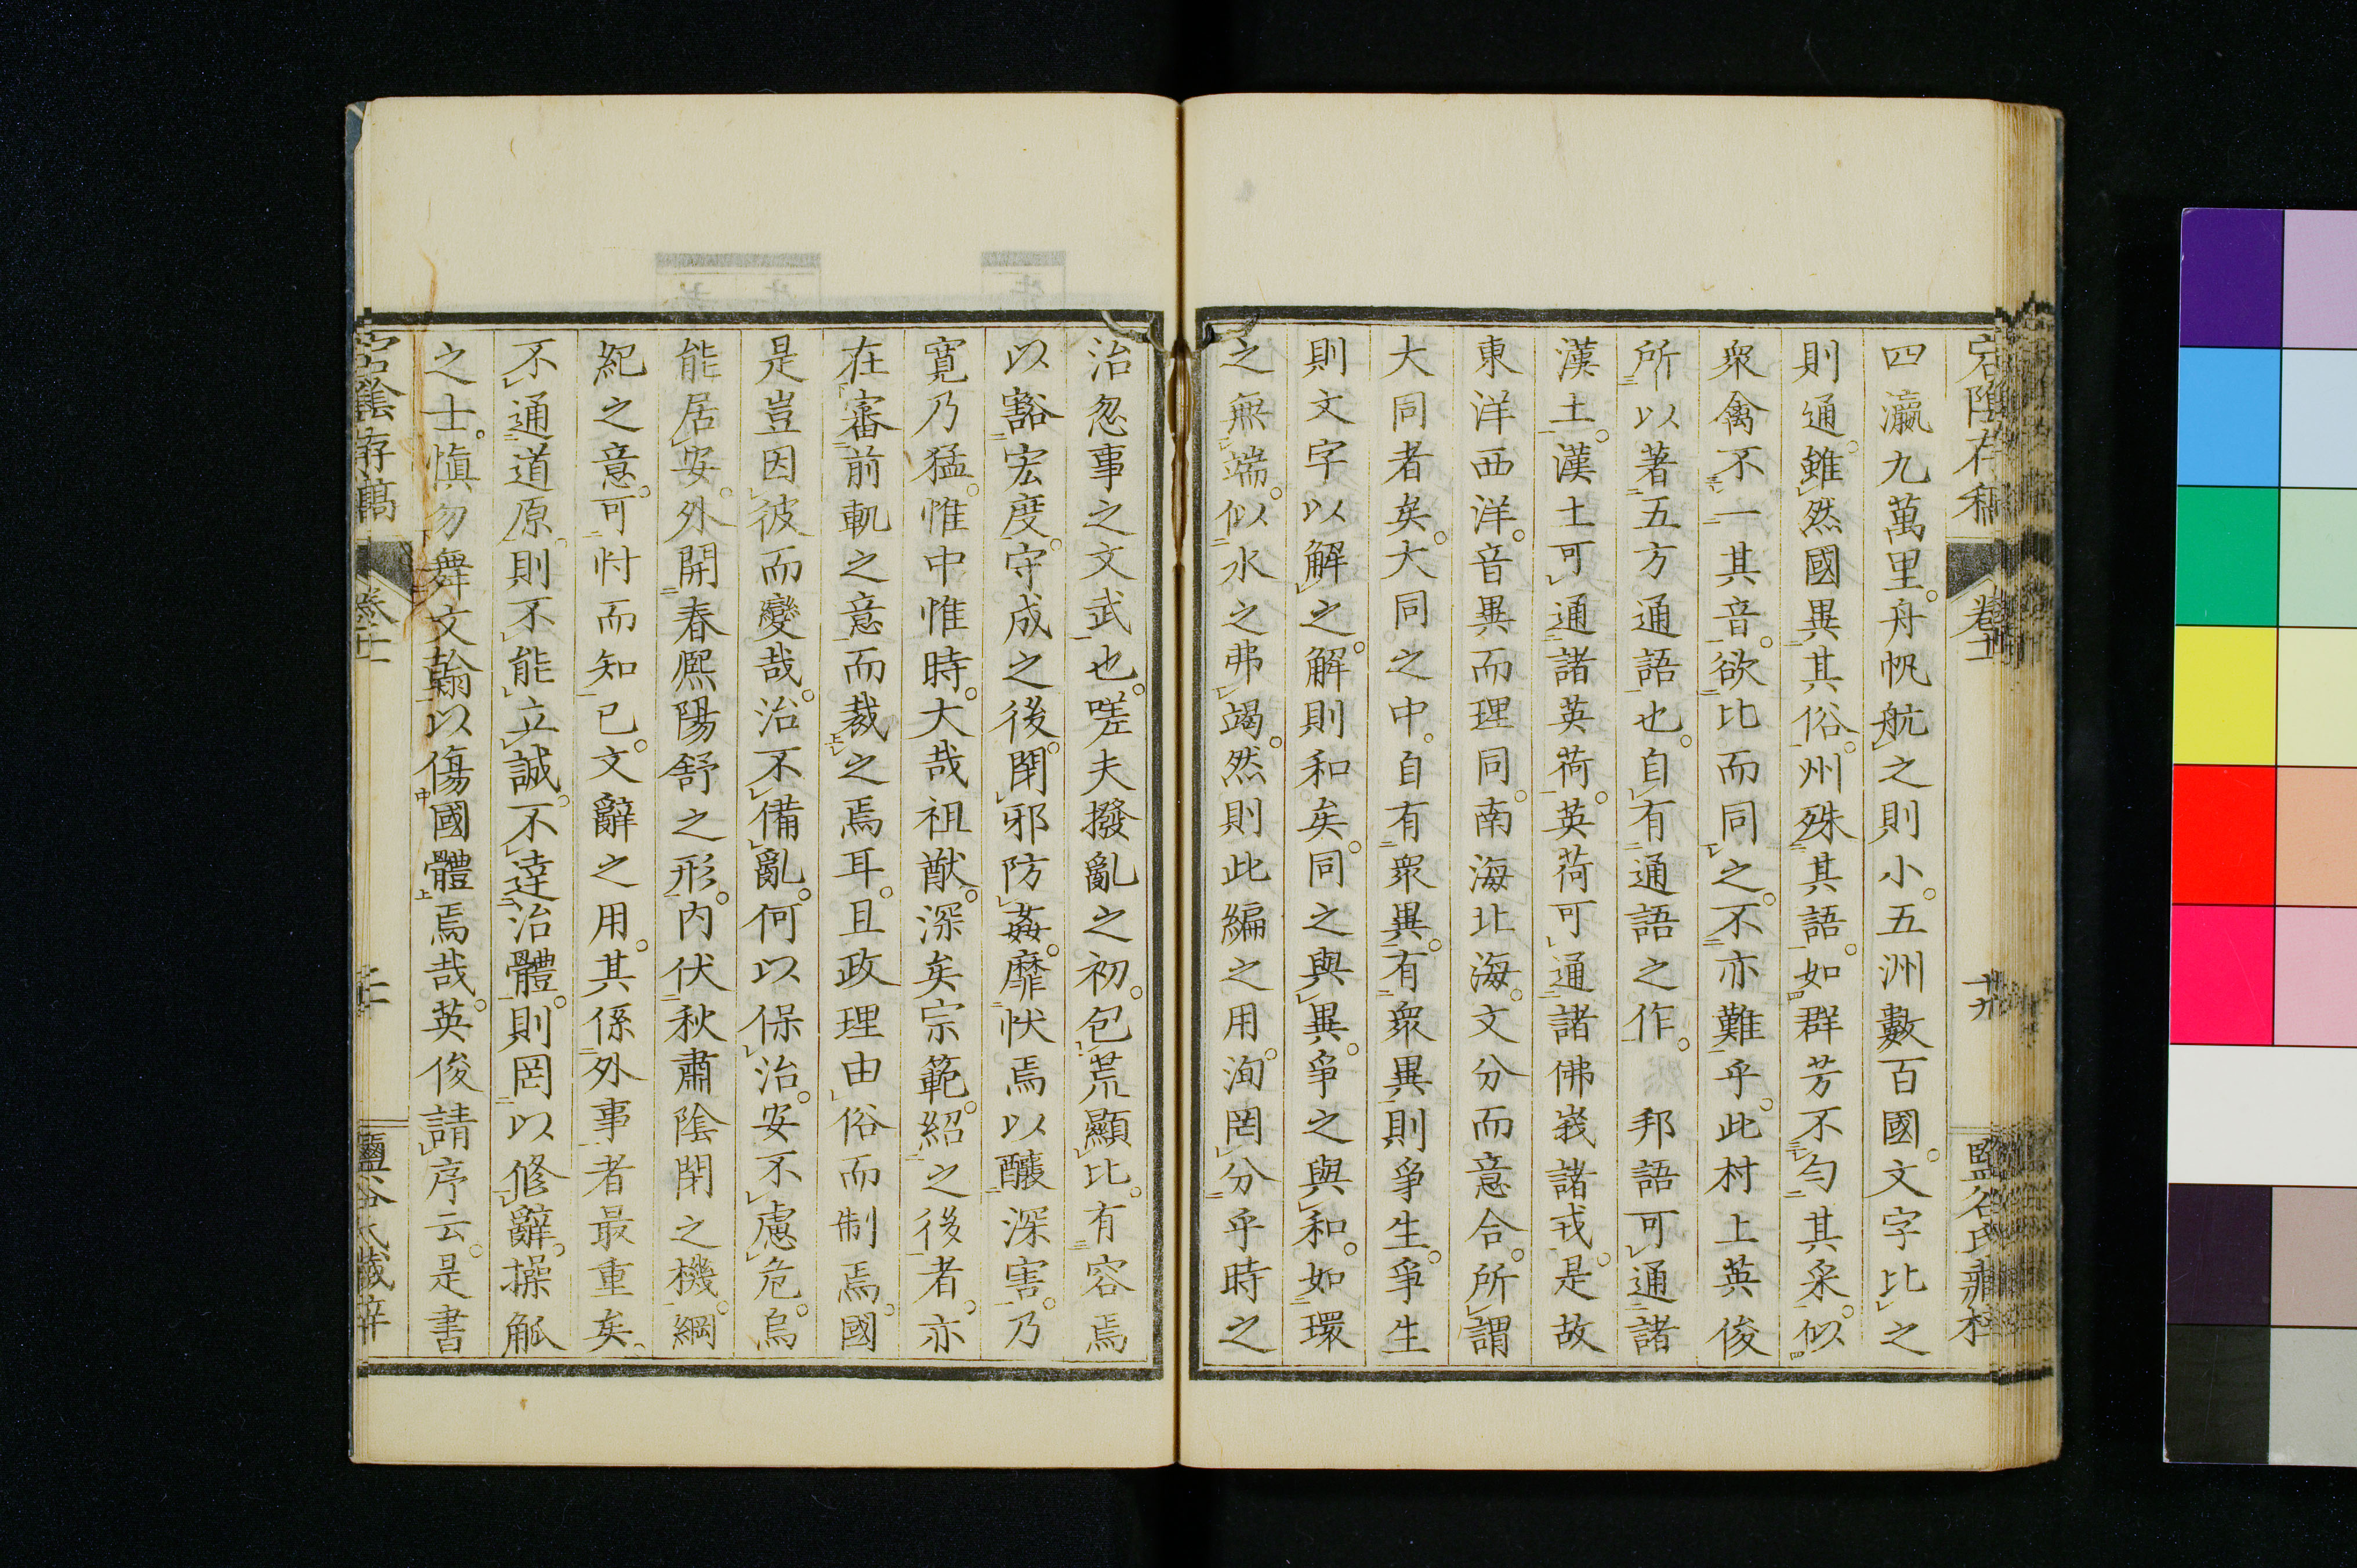 四瀛九萬里。舟帆航之則小。五洲數百國。文字比之
則通。雖然國異其俗。州殊其語。如群芳不勻其采。似
衆禽不一其音。欲比而同之。不亦難乎。此村上英俊
所以著五方通語也。自有通語之作。邦語可通諸
漢土。漢土可通諸英荷。英荷可通諸佛峩諸戎。是故
東洋西洋。音異而理同。南海北海。文分而意合。所謂
大同者矣。大同之中。自有衆異。有衆異則爭生。爭生
則文字以解之。解則和矣。同之與異。爭之與和。如環
之無端。似水之弗竭。然則此編之用。洵罔分乎時之
治忽事之文武也。嗟夫撥亂之初。包荒顯比。有容焉
以豁宏度。守成之後。閑邪防姦。靡忕焉以釀深害。乃
寬乃猛。惟中惟時。大哉祖猷。深矣宗範。紹之後者。亦
在審前軌之意而裁之焉耳。且政理由俗而制焉。國
是豈因彼而變哉。治不備亂。何以保治。安不慮危。烏
能居安。外開春熈陽舒之形。内伏秋肅陰閉之機。綱
紀之意。可忖而知已。文辭之用。其係外事者最重矣。
不通道原。則不能立誠。不達治體。則罔以修辭。操觚
之士。愼勿舞文翰以傷國體焉哉。英俊請序云。是書
宕陰存稿 卷十一